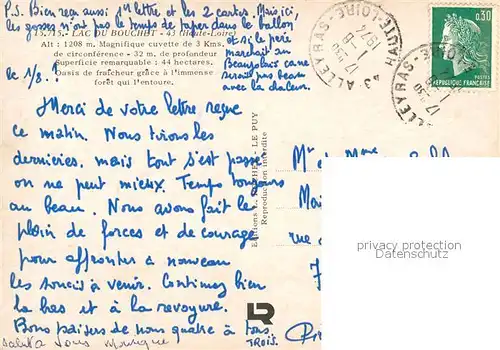 P.S. Bien reçu aussi 1re lettre et les 2 cartes. Mais ici,
les gosses n'ont pas le temps de taper dans le ballon
et si le père
marchait au
Beaujolais ça ne
irait pas beau
avec la chaleur.
13.715. - LAC DU BOUCHET - 43 (Haute-Loire)
Alt : 1208 m. Magnifique cuvette de 3 Kms.
de circonférence - 32 m. de profondeur
Superficie remarquable : 44 hectares.
Oasis de fraîcheur grâce à l'immense
forêt qui l'entoure.
le 1/8 !
Merci de votre lettre reçue
ce matin. Nous tirons les
dernières. mais tout s'est passé
on ne peut mieux. Temps toujours
au beau. Nous avons fait le
plein de forces et de courage
pour affronter à nouveau
les soucis à venir. Continuez bien
là bas et à la revoyure.
Bons baisers de nous quatre à tous
TROIS.
salut à tous Monique
LE PUY
Reproduction interdite
43 ALLEYRAS HAUTE-LOIRE
17 H 30
1-8
1974
0,30
POSTES
REPUBLIQUE FRANÇAISE
43 ALLEYRAS
17 H 30
Mr et Mme
LR
Copyright protected image
www.ansichtskarten-center.de